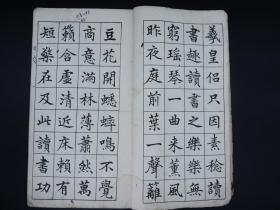 羲皇侶只因素稔讀
書趣讀書之樂樂無
窮瑤琴一曲來薰風
昨夜庭前葉一聲籬
豆花開蟋蟀鳴不覺
商意滿林薄蕭然萬
籟含虛清近床賴有
短檠在及此讀書功